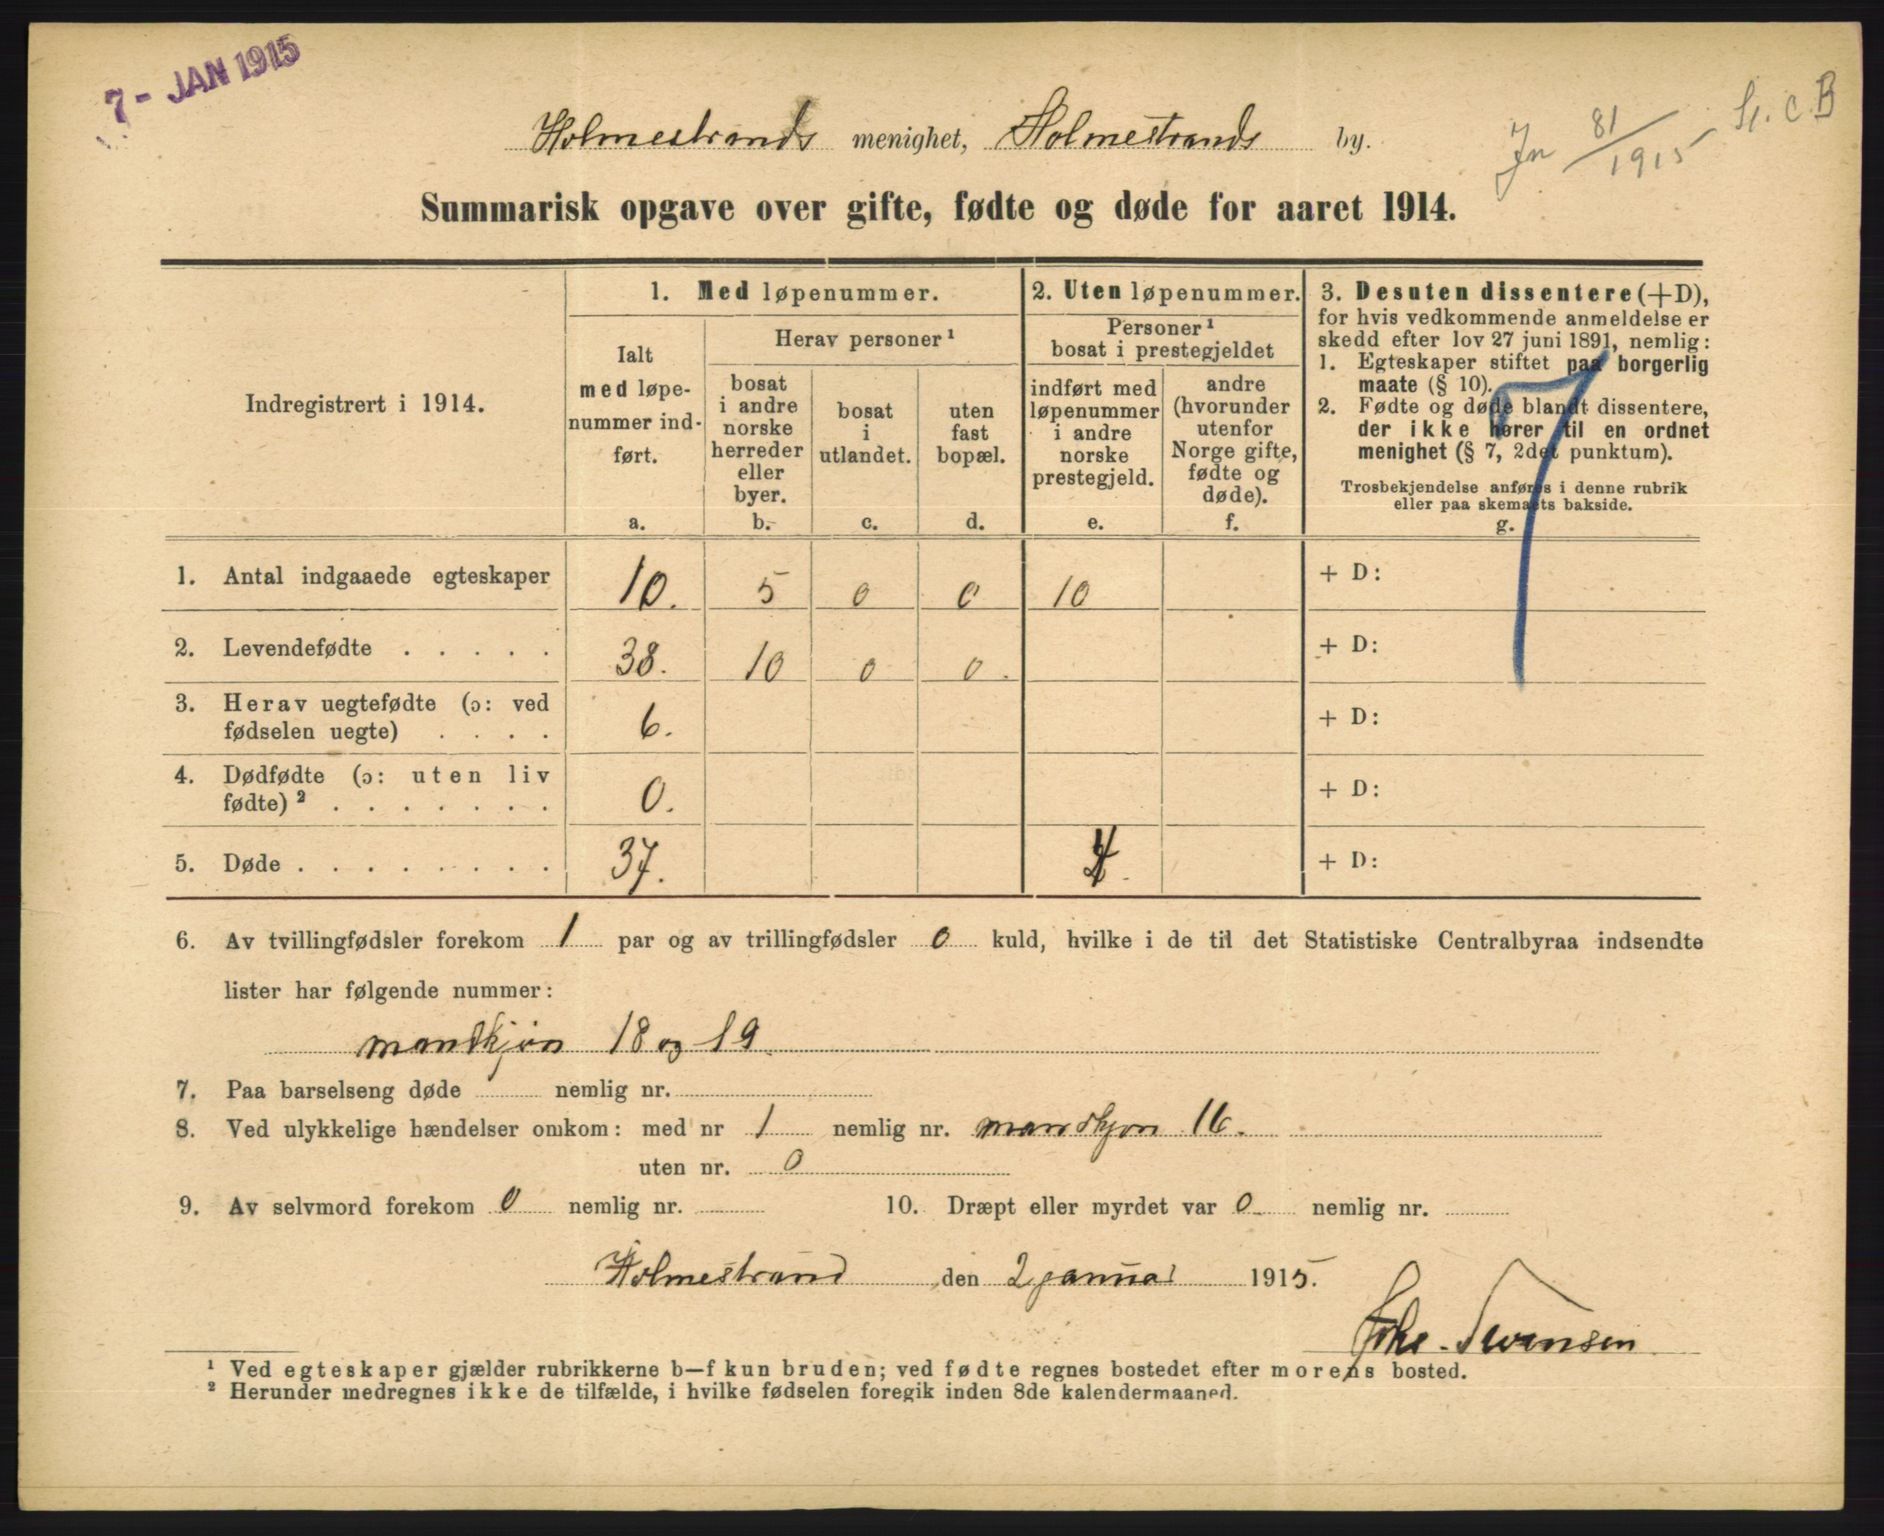 7 - JAN 1915
Holmestrands menighet, Holmestrands by.
Jn 81/1915 S. C B
Summarisk opgave over gifte, fødte og døde for aaret 1914.
Indregistrert i 1914.
1. Med løpenummer.
Ialt
med løpe-
nummer ind-
ført.
a.
Herav personer ¹
bosat
i andre
norske
herreder
eller
byer.
b.
bosat
i
utlandet.
c.
uten
fast
bopæl.
d.
2. Uten løpenummer.
Personer ¹
bosat i prestegjeldet
indført med
løpenummer
i andre
norske
prestegjeld.
e.
andre
(hvorunder
utenfor
Norge gifte,
fødte og
døde).
f.
3. Desuten dissentere (+D),
for hvis vedkommende anmeldelse er
skedd efter lov 27 juni 1891, nemlig:
1. Egteskaper stiftet paa borgerlig
maate (§ 10).
2. Fødte og døde blandt dissentere,
der ikke hører til en ordnet
menighet (§ 7, 2det punktum).
Trosbekjendelse anføres i denne rubrik
eller paa skemaets bakside.
g.
7
1. Antal indgaaede egteskaper 10. 5 0 0 10 + D:
2. Levendefødte . . . . . 38. 10 0 0. + D:
3. Herav uegtefødte (ɔ: ved
fødselen uegte) . . . . 6. + D:
4. Dødfødte (ɔ: uten liv
fødte) ² . . . . . . . 0. + D:
5. Døde . . . . . . . . 37. + D:
6. Av tvillingfødsler forekom 1 par og av trillingfødsler 0 kuld, hvilke i de til det Statistiske Centralbyraa indsendte
lister har følgende nummer:
mandkjøn 18 og 19
7. Paa barselseng døde nemlig nr.
8. Ved ulykkelige hændelser omkom: med nr 1 nemlig nr. mandkjøn 16.
uten nr. 0
9. Av selvmord forekom 0 nemlig nr. 10. Dræpt eller myrdet var 0 nemlig nr.
Holmestrand den 2 januar 1915.
Svensen
¹ Ved egteskaper gjælder rubrikkerne b—f kun bruden; ved fødte regnes bostedet efter morens bosted.
² Herunder medregnes ikke de tilfælde, i hvilke fødselen foregik inden 8de kalendermaaned.